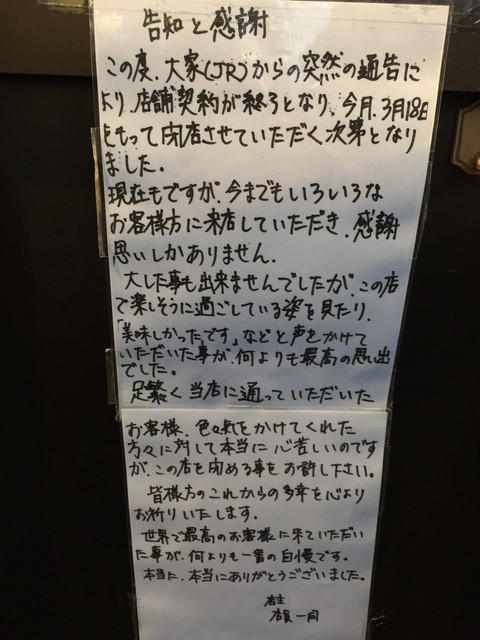 告知と感謝
この度、大家(JR)からの突然の通告に
より、店舗契約が終了となり、今月、3月18日
をもって閉店させていただく次第となり
ました。
現在もですが、今までもいろいろな
お客様方に来店していただき、感謝
思いしかありません。
大した事も出来ませんでしたが、この店
で楽しそうに過ごしている姿を見たり、
「美味しかったです」などと声をかけて
いただいた事が、何よりも最高の思い出
でした。
足繁く当店に通っていただいた
お客様、色々気をかけてくれた
方々に対して本当に心苦しいのです
が、この店を閉める事をお許し下さい。
皆様方のこれからの多幸を心より
お祈りいたします。
世界で最高のお客様に来ていただい
た事が、何よりも一番の自慢です。
本当に、本当にありがとうございました。
店主
店員一同